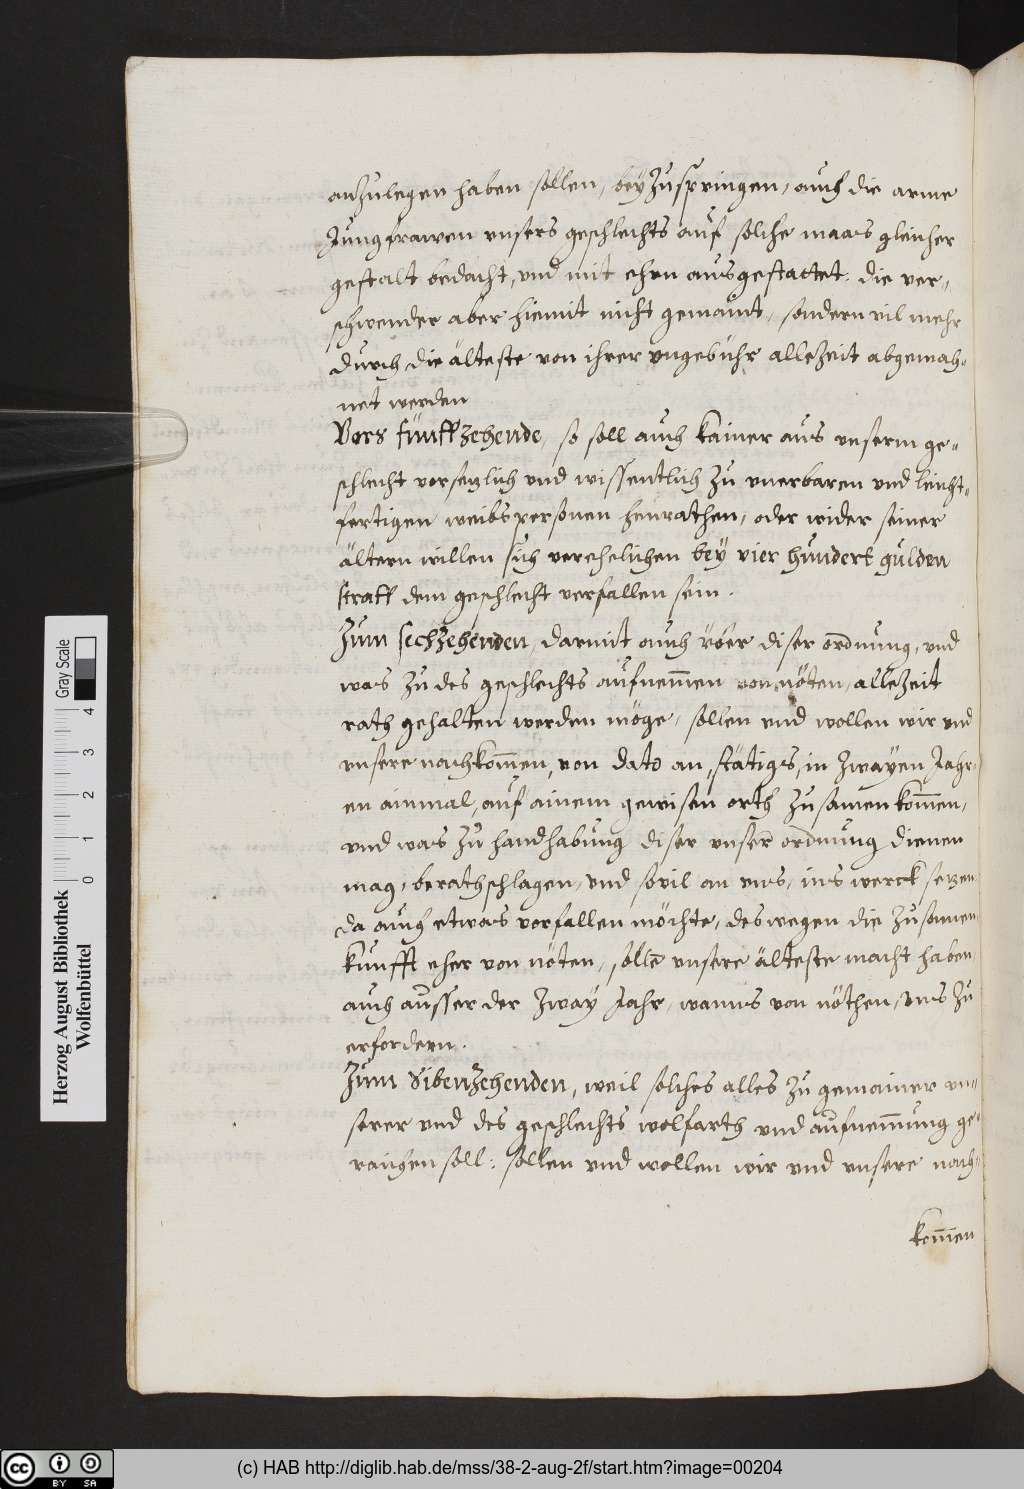 anzulegen haben sollen, beyzuspringen, auch die arme
Jungfrawen unsers geschlechts auf solche maas gleicher
gestalt bedacht, und mit ehrn ausgestattet: die ver-
schwender aber hiemit nicht gemaint, sondern vil mehr
durch die älteste von ihrer ungebühr allezeit abgemah-
net werden
Vors fünffzehende, so soll auch kainer aus unserm ge-
schlecht vorsetzlich und wissentlich zu unerbaren und leicht-
fertigen weibspersonen heurathen, oder wider seiner
ältern willen sich verehelichen bey vier hundert gulden
straff dem geschlecht verfallen sein.
Zum sechzehenden, darmit auch über diser ordnung, und
was zu des geschlechts aufnem̄en von nöten, allezeit
rath gehalten werden möge, sollen und wollen wir und
unsere nachkom̄en, von dato an, stätigs, in zwayen Jahr-
en ainmal, auf ainem gewisen orth zusamen kom̄en,
und was zu handhabung diser unser ordnung dienen
mag, berathschlagen, und sovil an uns, ins werck setzen
da auch etwas vorfallen möchte, deswegen die zusamen
kunfft eher von nöten, sollē unsere älteste macht haben
auch ausser der zway Jahr, wanns von nöthen, uns zu
erfordern.
Zum Sibenzehenden, weil solches alles zu gemainer un-
serer und des geschlechts wolfarth und aufnem̄ung ge-
raichen soll: sollen und wollen wir und unsere nach-
kom̄en
Herzog August Bibliothek
Wolfenbüttel
0 1 2 3 4
Gray Scale
cc BY SA
(c) HAB http://diglib.hab.de/mss/38-2-aug-2f/start.htm?image=00204